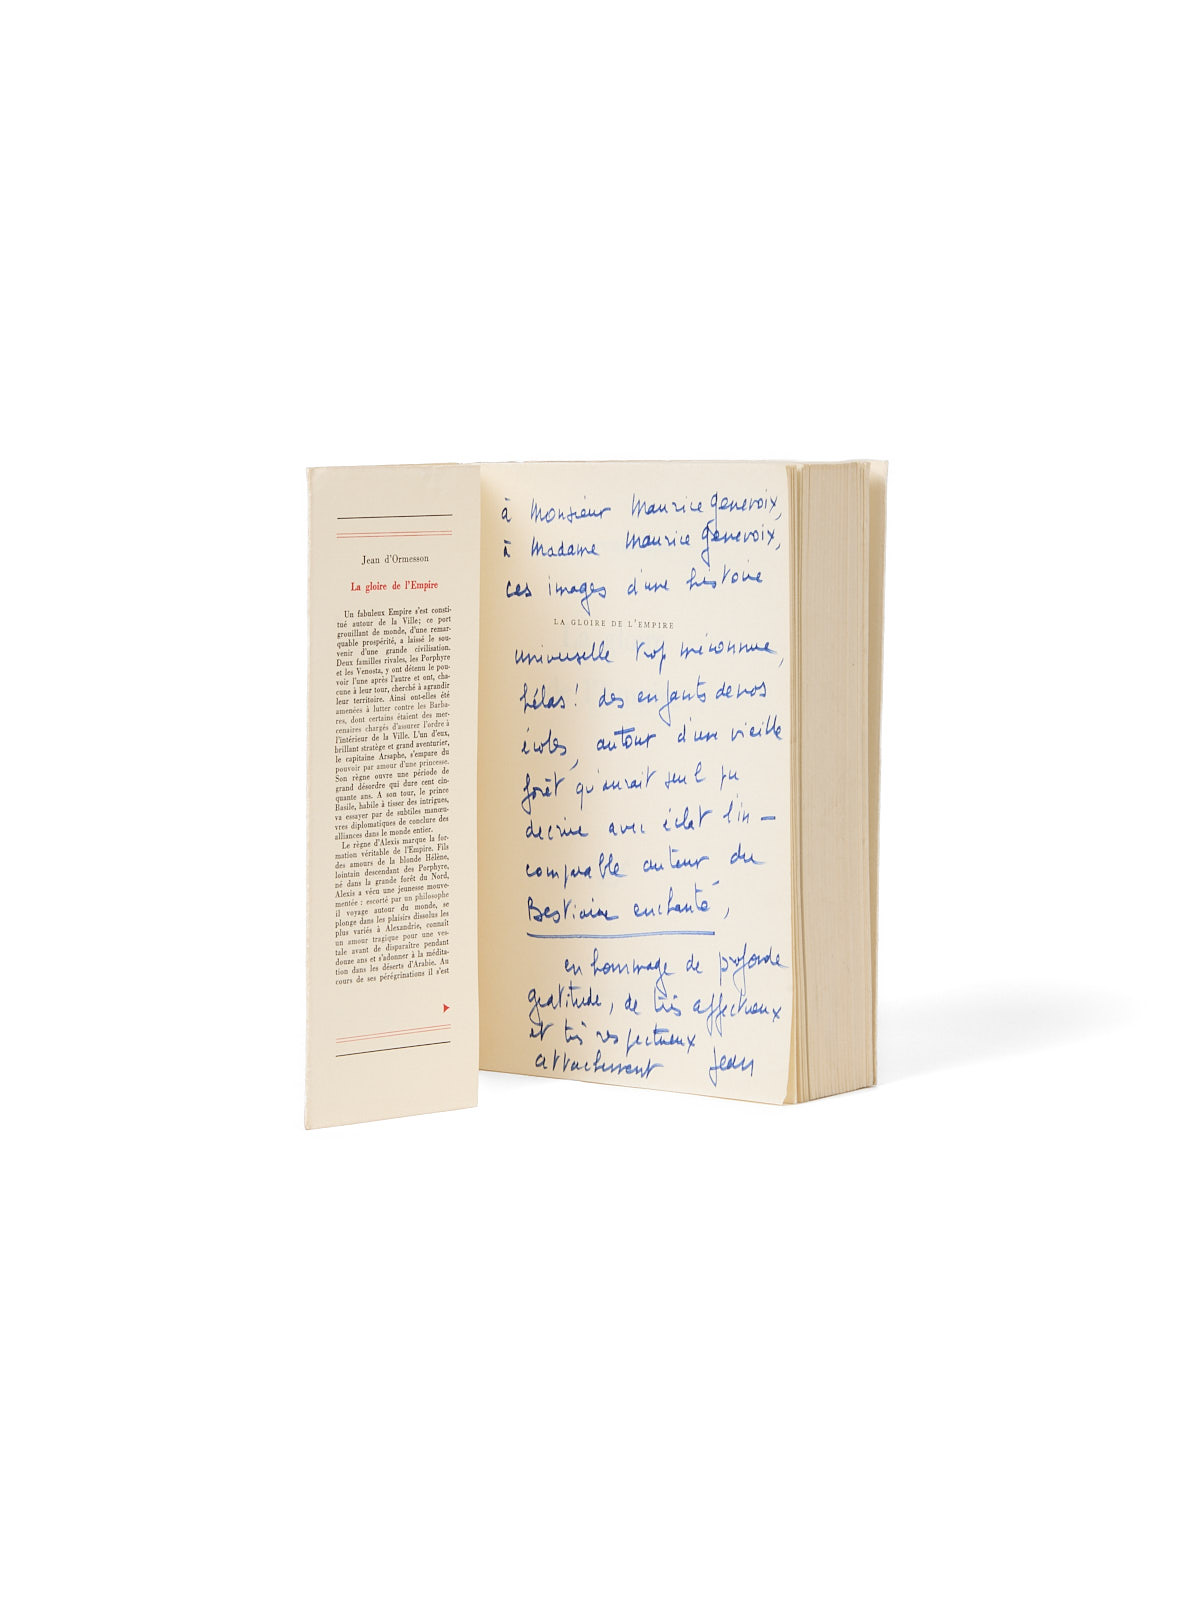 Jean d'Ormesson
La gloire de l'Empire
Un fabuleux Empire s'est consti-
tué autour de la Ville; ce port
grouillant de monde, d'une remar-
quable prospérité, a laissé le sou-
venir d'une grande civilisation.
Deux familles rivales, les Porphyre
et les Venosta, y ont détenu le pou-
voir l'une après l'autre et ont, cha-
cune à leur tour, cherché à agrandir
leur territoire. Ainsi ont-elles été
amenées à lutter contre les Barba-
res, dont certains étaient des mer-
cenaires chargés d'assurer l'ordre à
l'intérieur de la Ville. L'un d'eux,
brillant stratège et grand aventurier,
le capitaine Arsaphe, s'empare du
pouvoir par amour d'une princesse.
Son règne ouvre une période de
grand désordre qui dure cent cin-
quante ans. A son tour, le prince
Basile, habile à tisser des intrigues,
va essayer par de subtiles manœu-
vres diplomatiques de conclure des
alliances dans le monde entier.
Le règne d'Alexis marque la for-
mation véritable de l'Empire. Fils
des amours de la blonde Hélène,
lointain descendant des Porphyre,
né dans la grande forêt du Nord,
Alexis a vécu une jeunesse mouve-
mentée : escorté par un philosophe
il voyage autour du monde, se
plonge dans les plaisirs dissolus les
plus variés à Alexandrie, connaît
un amour tragique pour une ves-
tale avant de disparaître pendant
douze ans et s'adonner à la médita-
tion dans les déserts d'Arabie. Au
cours de ses pérégrinations il s'est
à Monsieur Maurice Genevoix,
à Madame Maurice Genevoix,
ces images d'une histoire
LA GLOIRE DE L'EMPIRE
universelle trop méconnue,
hélas! des enfants de nos
écoles, autour d'une vieille
forêt qu'aurait seul pu
décrire avec éclat l'in-
comparable auteur du
Bestiaire enchanté,
en hommage de profonde
gratitude, de très affectueux
et très respectueux
attachement Jean